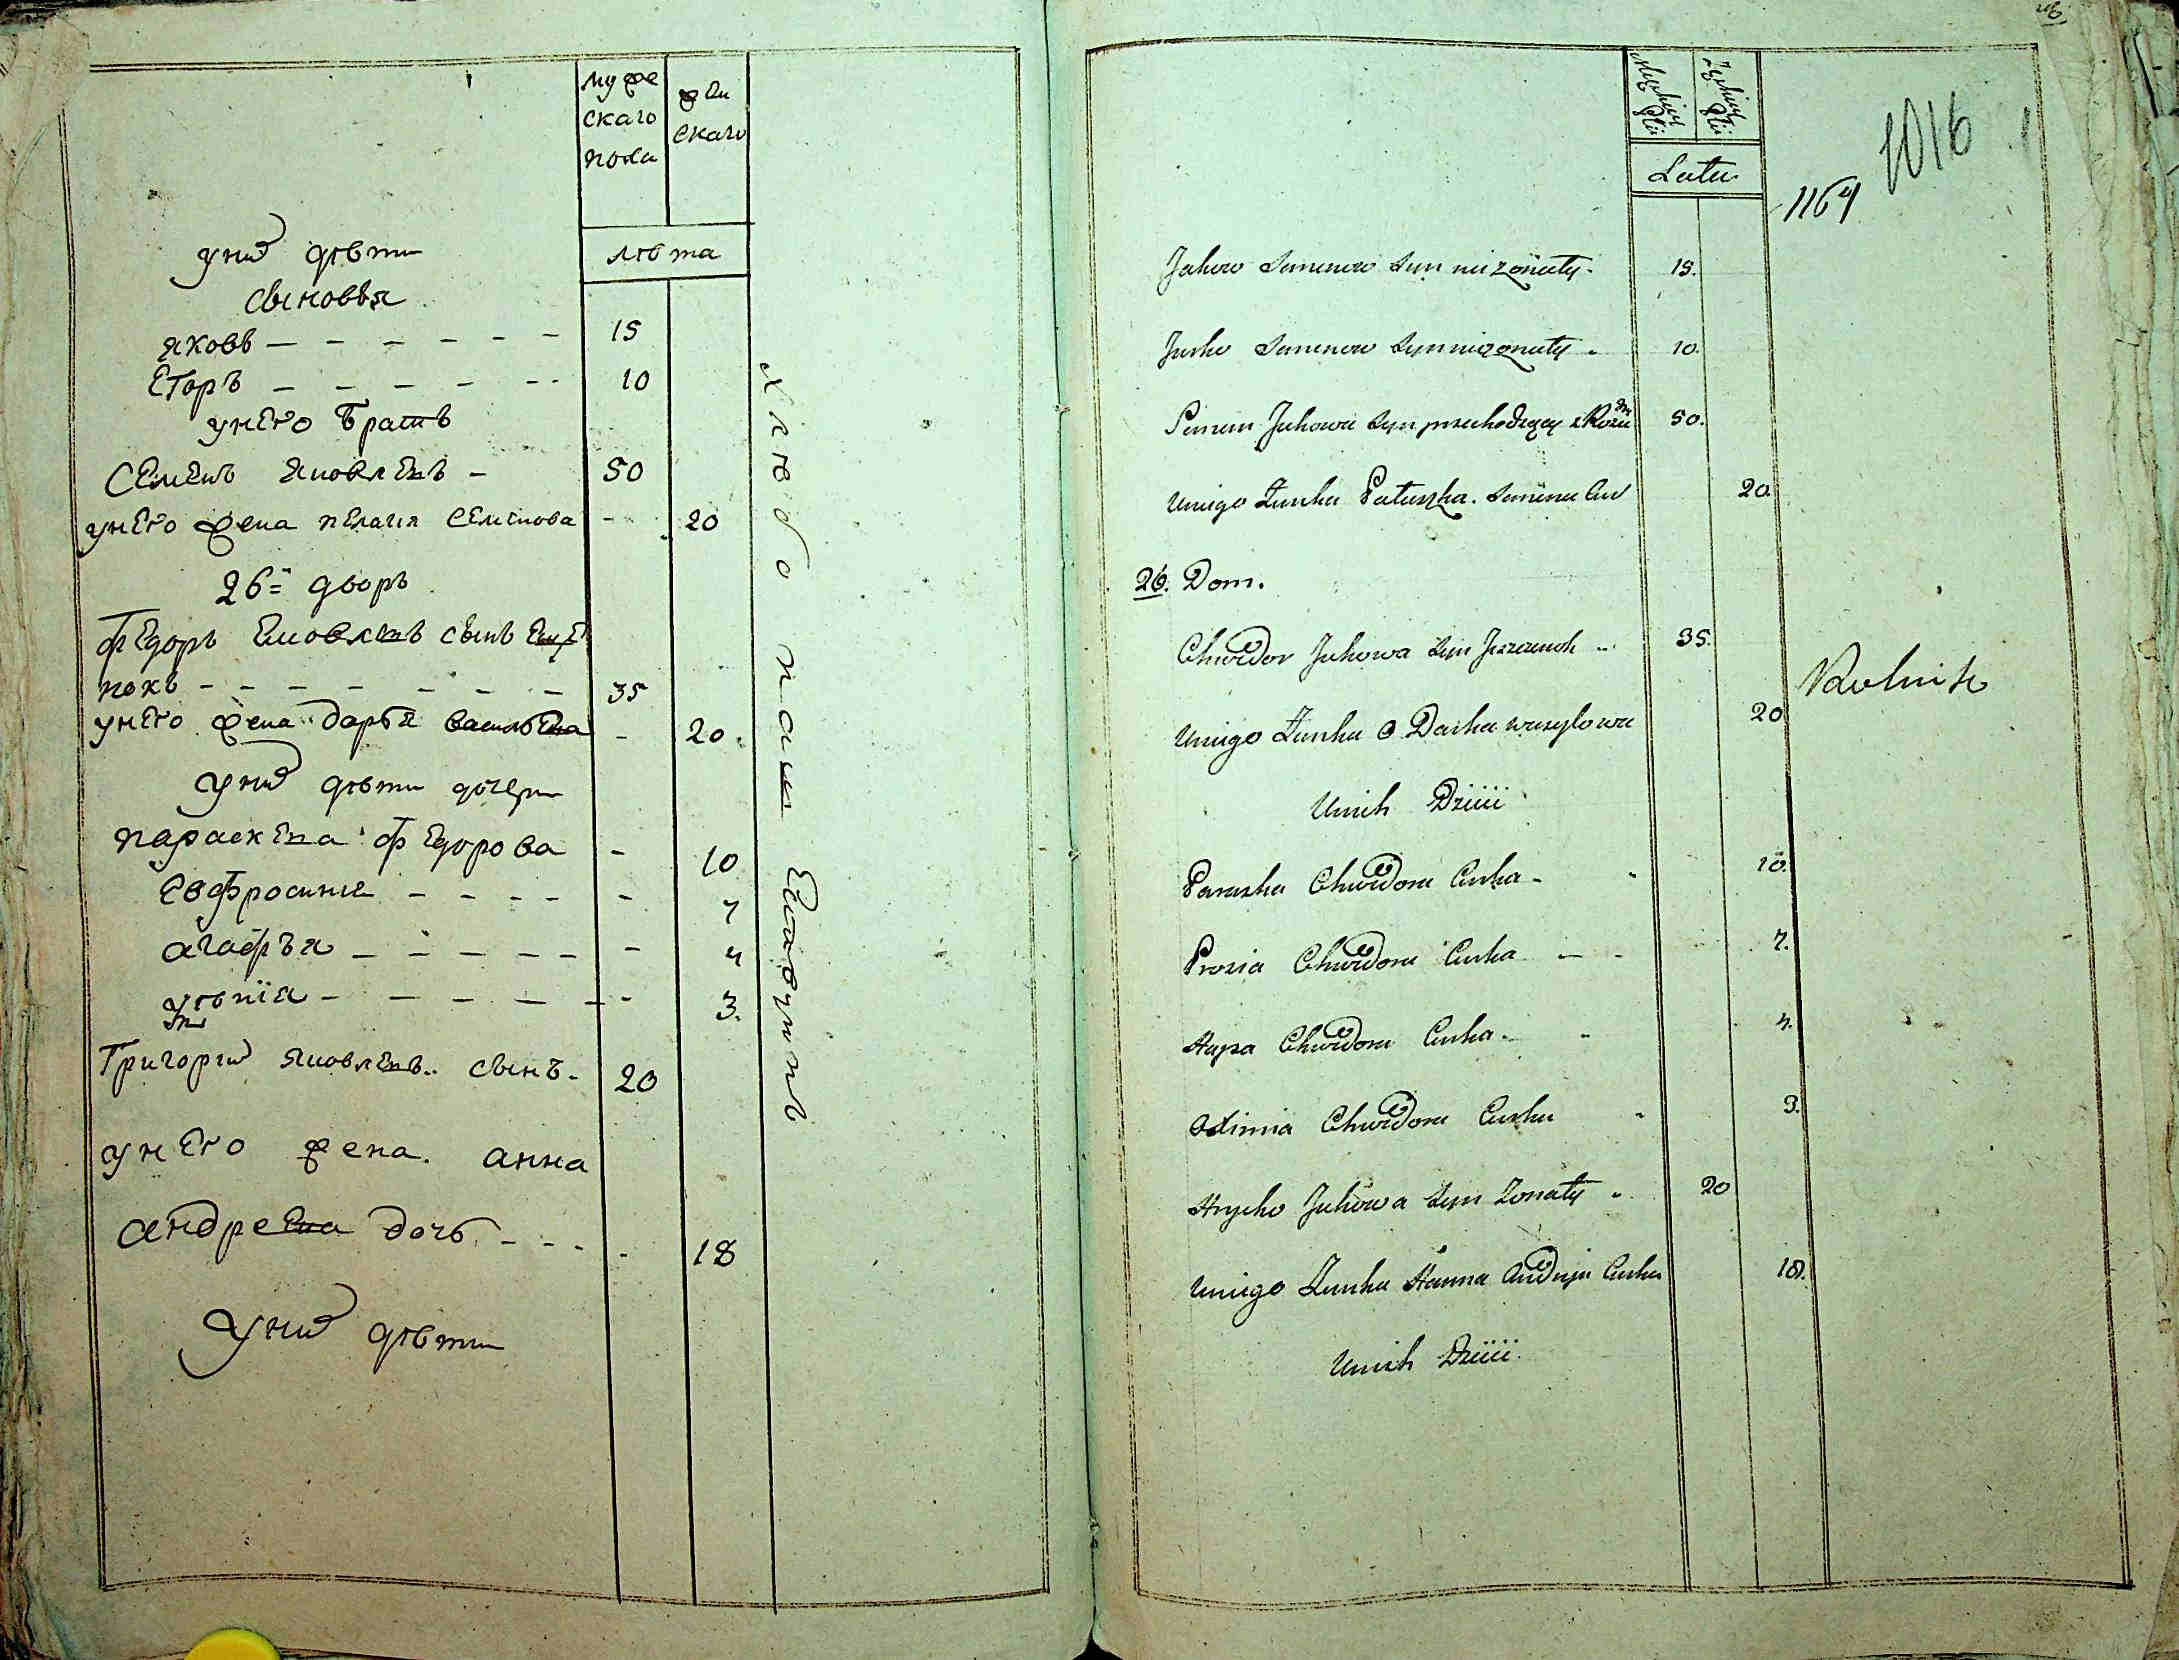 муже
скаго
пола
жен
скаго
лѣта
у них дѣти
сыновья
яковъ — — — — — — 15
Егоръ — — — — — — 10
у него братъ
Семенъ яковлевъ — 50
у него жена пелагия Семенова — 20
26= дворъ
федоръ яковлевъ сынъ
— — — — — — — 35
у него жена дарья васильева — 20.
у них дѣти дочери
параскева федорова — 10
Евфросиния — — — — — 7
агафья — — — — — — 4
— — — — — — 3.
григорий яковлевъ.. сынъ. 20
у него жена. анна
андреева дочь. — — — — 18
у них дѣти
хлебопашестводъ
Męzkiey Płci
Żeńskiey Płci
Lata
1164
1016
Jakow Semenow Syn nieżonaty. 15.
Jusko Semenow Syn nieżonaty. 10.
Semen Jukowa Syn przechodzący z 50.
Uniego Żonka Pałaszka. Semena 20.
26. Dom.
Chwedor Jukowa Syn 35.
Rolnik
Uniego Żonka Darka wasylowa 20
Unich Dzieci
Paraska Chwedora Curka — 10.
Prosia Chwedora Curka — — 7.
Hapa Chwedora Curka — 4.
Chwedora Curka 3.
Hryćko Jukowa Syn Żonaty 20
Uniego Żonka Hanna Andreja Curka 18.
Unich Dzieci